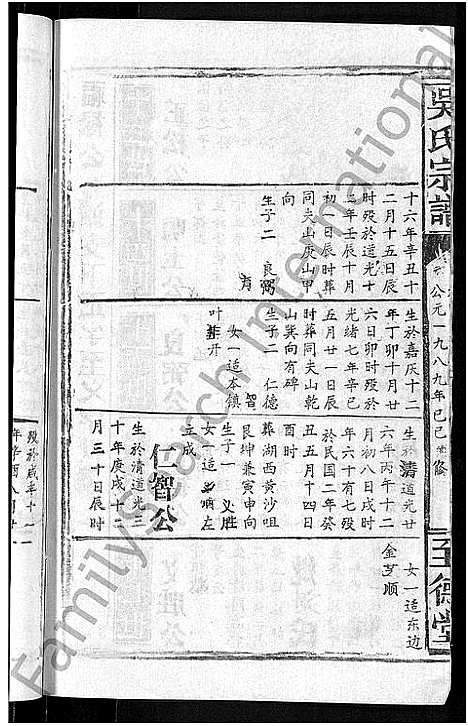 吳氏宗譜
公元一九八九年己巳
至德堂
十六年辛丑十
二月十五日辰
时殁於道光十
二年壬辰十月
初一日辰时葬
同夫山庚山甲
向
生子二 良弼
生於嘉庆十二
年丁卯十月廿
六日卯时殁於
光绪七年辛巳
五月廿一日辰
时葬同夫山乾
山巽向有碑
生子二 仁德
智
女一适本镇
叶
生於清道光廿
六年丙午十二
月初八日戌时
年六十有七殁
於民国二年癸
丑五月十四日
酉时
葬湖西黄沙咀
艮坤兼寅申向
生子一 义胜
女一适 左
立成
仁智公
生於清道光三
十年庚戌十二
月三十日辰时
女一适东边
金 顺
殁於咸丰十一
年辛酉八月
FamilySearch International